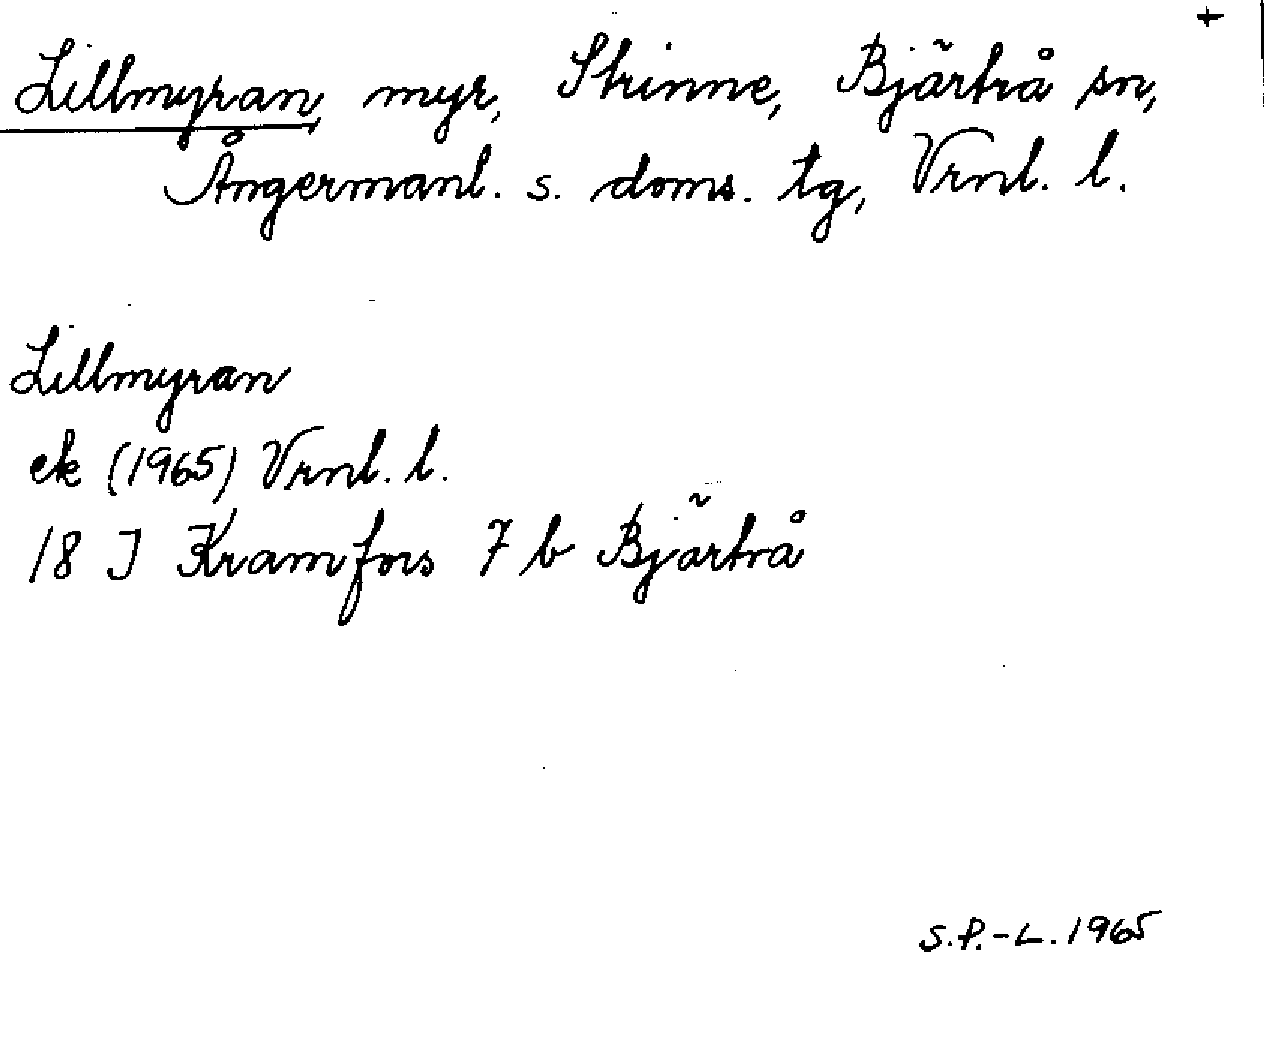 +
Lillmyran, myr, Strinne, Bjärtrå sn,
Ångermanl. s. doms. tg, Vrnl. l.
Lillmyran
ek (1965) Vrnl. l.
18 J Kramfors 7 b Bjärtrå
S.P.-L. 1965